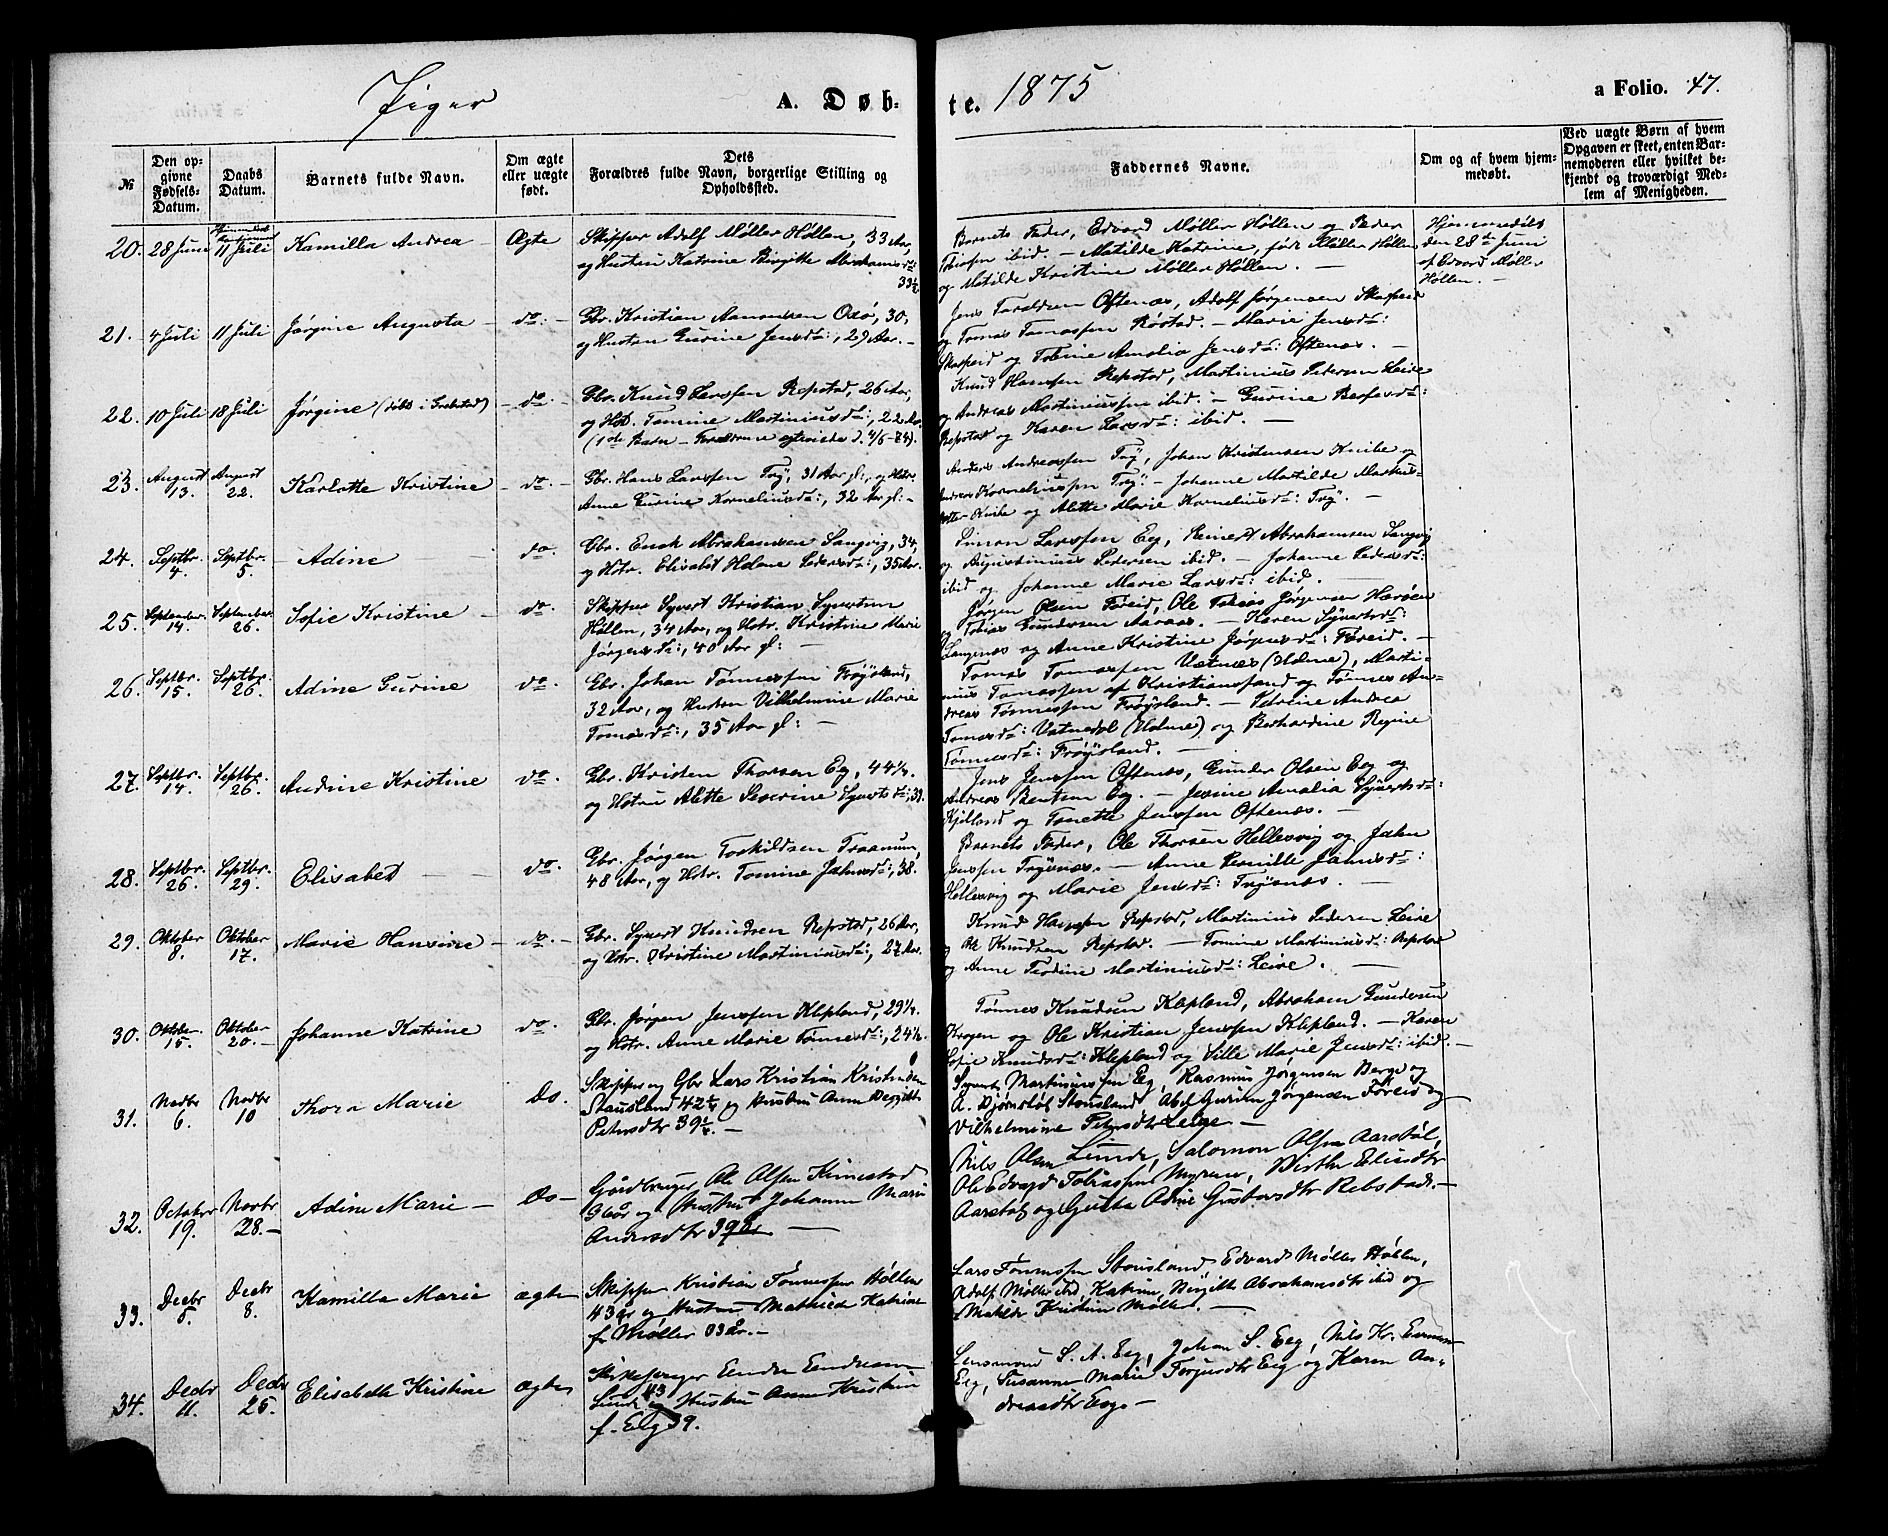 Piger
A. Døb-
te. 1875
a Folio. 47.
№
Den op-
givne
Fødsels-
Datum.
Daabs
Datum.
Barnets fulde Navn.
Om ægte
eller uægte
født.
Dets
Forældres fulde Navn, borgerlige Stilling og
Opholdssted.
Faddernes Navne.
Om og af hvem hjem-
medøbt.
Ved uægte Børn af hvem
Opgaven er skeet, enten Bar-
nemoderen eller hvilket be-
kjendt og troværdigt Med-
lem af Menigheden.
20. 28 Juni 11 Juli Kamilla Andrea Ægte
Skipper Adolf Møller Høllen, 33 Aar,
og Hustru Katrine Birgitte Abrahamsdr:
39½
Barnets Fader, Edvard Møller Høllen og Peder
Tobiasen ibid. — Matilde Katrine, født Møller Høllen
og Matilde Kristine Møller Høllen. —
Hjemmedøbt
den 28de Juni
af Edvard Møller
Høllen. —
21. 4 Juli 11 Juli Jørgine Augusta — do. —
Gbr. Kristian Aanonsen Oxø, 30,
og Hustru Gurine Jensdr:, 29 Aar. —
Jens Taraldsen Oftenæs, Adolf Jørgensen Skarpeid
og Tomas Tomassen Røstad. — Marie Jensdr:
Skarpeid og Tobine Amalia Jensdr: Oftenæs. —
22. 10 Juli 18 Juli Jørgine (døbt i Greipstad) — do. —
Gbr. Knud Larssen Repstad, 26 Aar,
og Hst. Tomine Martiniusdr:, 22 Aar
(1ste Barn — Forældrene ægteviede d. 4/5-74).
Knud Hanssen Repstad, Martinius Pedersen Leire
og Andreas Martiniussen ibid. — Gurine
Repstad og Karen Larsdr: ibid. —
23. August 13. August 22. Karlotte Kristine — do. —
Gbr. Hans Larssen Try, 31 Aar gl:, og Hstr.
Anne Gurine Korneliusdr:, 32 Aar gl: —
Anders Andreassen Try, Johan Kristensen Knibe og
Andreas Korneliussen Try. — Johanne Matilde Markus-
datter Knibe og Alette Marie Korneliusdr: Try. —
24. Septbr. 4. Septbr. 5. — Adine — do.
Gbr. Enok Abrahamsen Langvig, 34,
og Hstr. Elisabet Helene Pedersdr:, 35 Aar.
Simon Larssen Eeg, Reinert Abrahamsen Langvig
og Augustinius Pedersen ibid. — Johanne Pedersdr:
ibid og Johanne Marie Larsdr: ibid. —
25. September 14. September 26. Sofie Kristine — do. —
Skipper Syvert Kristian Syvertsen
Høllen, 34 Aar, og Hstr. Kristine Marie
Jørgensdr:, 40 Aar gl: —
Jørgen Olsen Føreid, Ole Tobias Jørgensen Herøen
og Tobias Gundersen Aaraas. — Karen Syvertsdr:
Langenæs og Anne Kristine Jørgensdr: Føreid. —
26. Septbr. 15. Septbr. 26. Adine Gurine do.
Gbr. Johan Tønnessen Frøysland,
32 Aar, og Hustru Vilhelmine Marie
Tomasdr:, 35 Aar gl: —
Tomas Tomassen Vatnedal (Holme), Marti-
nius Tomassen af Kristianssand og Tønnes An-
dreas Tønnessen Frøysland. — Petrine Andrea
Tomasdr: Vatnedal (Holme) og Berhardine Regine
Tønnesdr: Frøysland. —
27. Septbr. 14. Septbr. 26. Andine Kristine do.
Gbr. Kristen Thorsen Eeg, 44¼.
og Hstru Alette Severine Syvertsdr:, 39.
Jens Jenssen Oftenæs, Gunder Olsen Eeg og
Andreas Bentsen Eeg. — Jensine Amalia Syvertsdr:
Kjelland og Tonette Jenssen Oftenæs. —
28. Septbr. 26. Septbr. 29. Elisabet — do.
Gbr. Jørgen Torkildsen Traanum,
48 Aar, og Hstr. Tomine Jahnsdr:, 38.
Barnets Fader, Ole Thorsen Hellesvig og Jahn
Jenssen Trysnæs. — Anne Pernille Jahnsdr:
Hellesvig og Marie Jensdr: Trysnæs. —
29. Oktober 8. Oktober 17. Marie Hansine — do. —
Gbr. Syvert Knudsen Repstad, 26 Aar,
og Hstr. Kristine Martiniusdr:, 27 Aar.
Knud Hanssen Repstad, Martinius Pedersen Leire
og Ole Knudsen Repstad. — Tomine Martiniusdr: Repstad
og Anne Tordine Martiniusdr: Leire. —
30. Oktober 15. Oktober 20. — Johanne Katrine do.
Gbr. Jørgen Jenssen Klepland, 29¼.
og Hstr. Anne Marie Tønnesdr:, 24½.
Tønnes Knudsen Klepland, Abraham Gundersen
Krogen og Ole Kristian Jenssen Klepland. — Karen
Sofie Knudsdr: Klepland og Sille Marie Jensdr: ibid. —
31. Novbr 6. Novbr 10 Thora Marie Do.
Skipper og Gbr Lars Kristian Kristensen
Stausland 42¼ og Hustru Anne Bergitte
Petersdtr 39½. —
Syvert Martiniussen Eeg, Rasmus Jørgensen Berge og
A. Bjørnstøl Stausland, Abel Gurine Jørgensen Føreid og
Vilhelmine Petersdtr Leire —
32. October 19. Novbr 28. — Adine Marie — Do —
Gårdbruger Ole Olsen Kinestad
36 år og Hustru Johanne Marie
Andersdtr 39 år —
Nils Olsen Lunde, Salomon Olsen Aarstøl,
Ole Edvard Tobiassen Myren, Birthe Elisdtr
Aarstøl og Gusta Adine Gustavsdtr Rebstad. —
33. Decbr 5. Decbr 8. Kamilla Marie ægte
Skipper Kristian Tønnessen Høllen
43 år og Hustru Mathilde Katrine
f. Møller 33 år. —
Lars Tønnessen Stausland, Edvard Møller Høllen,
Adolf Møller ibid, Katrine Birgitte Abrahamsdtr ibid og
Matilde Kristine Møller. —
34. Decbr 11. Decbr 25. Elisabeth Kristine ægte
Kirkesanger Eendre Eendresen
Lunde 43 og Hustru Anne Kristine
f. Eeg 39.
Lensmand S. A. Eeg, Johan S. Eeg, Nils Kr.
Eeg, Susanne Marie Torjusdtr Eeg og Karen An-
dreasdtr Eeg —